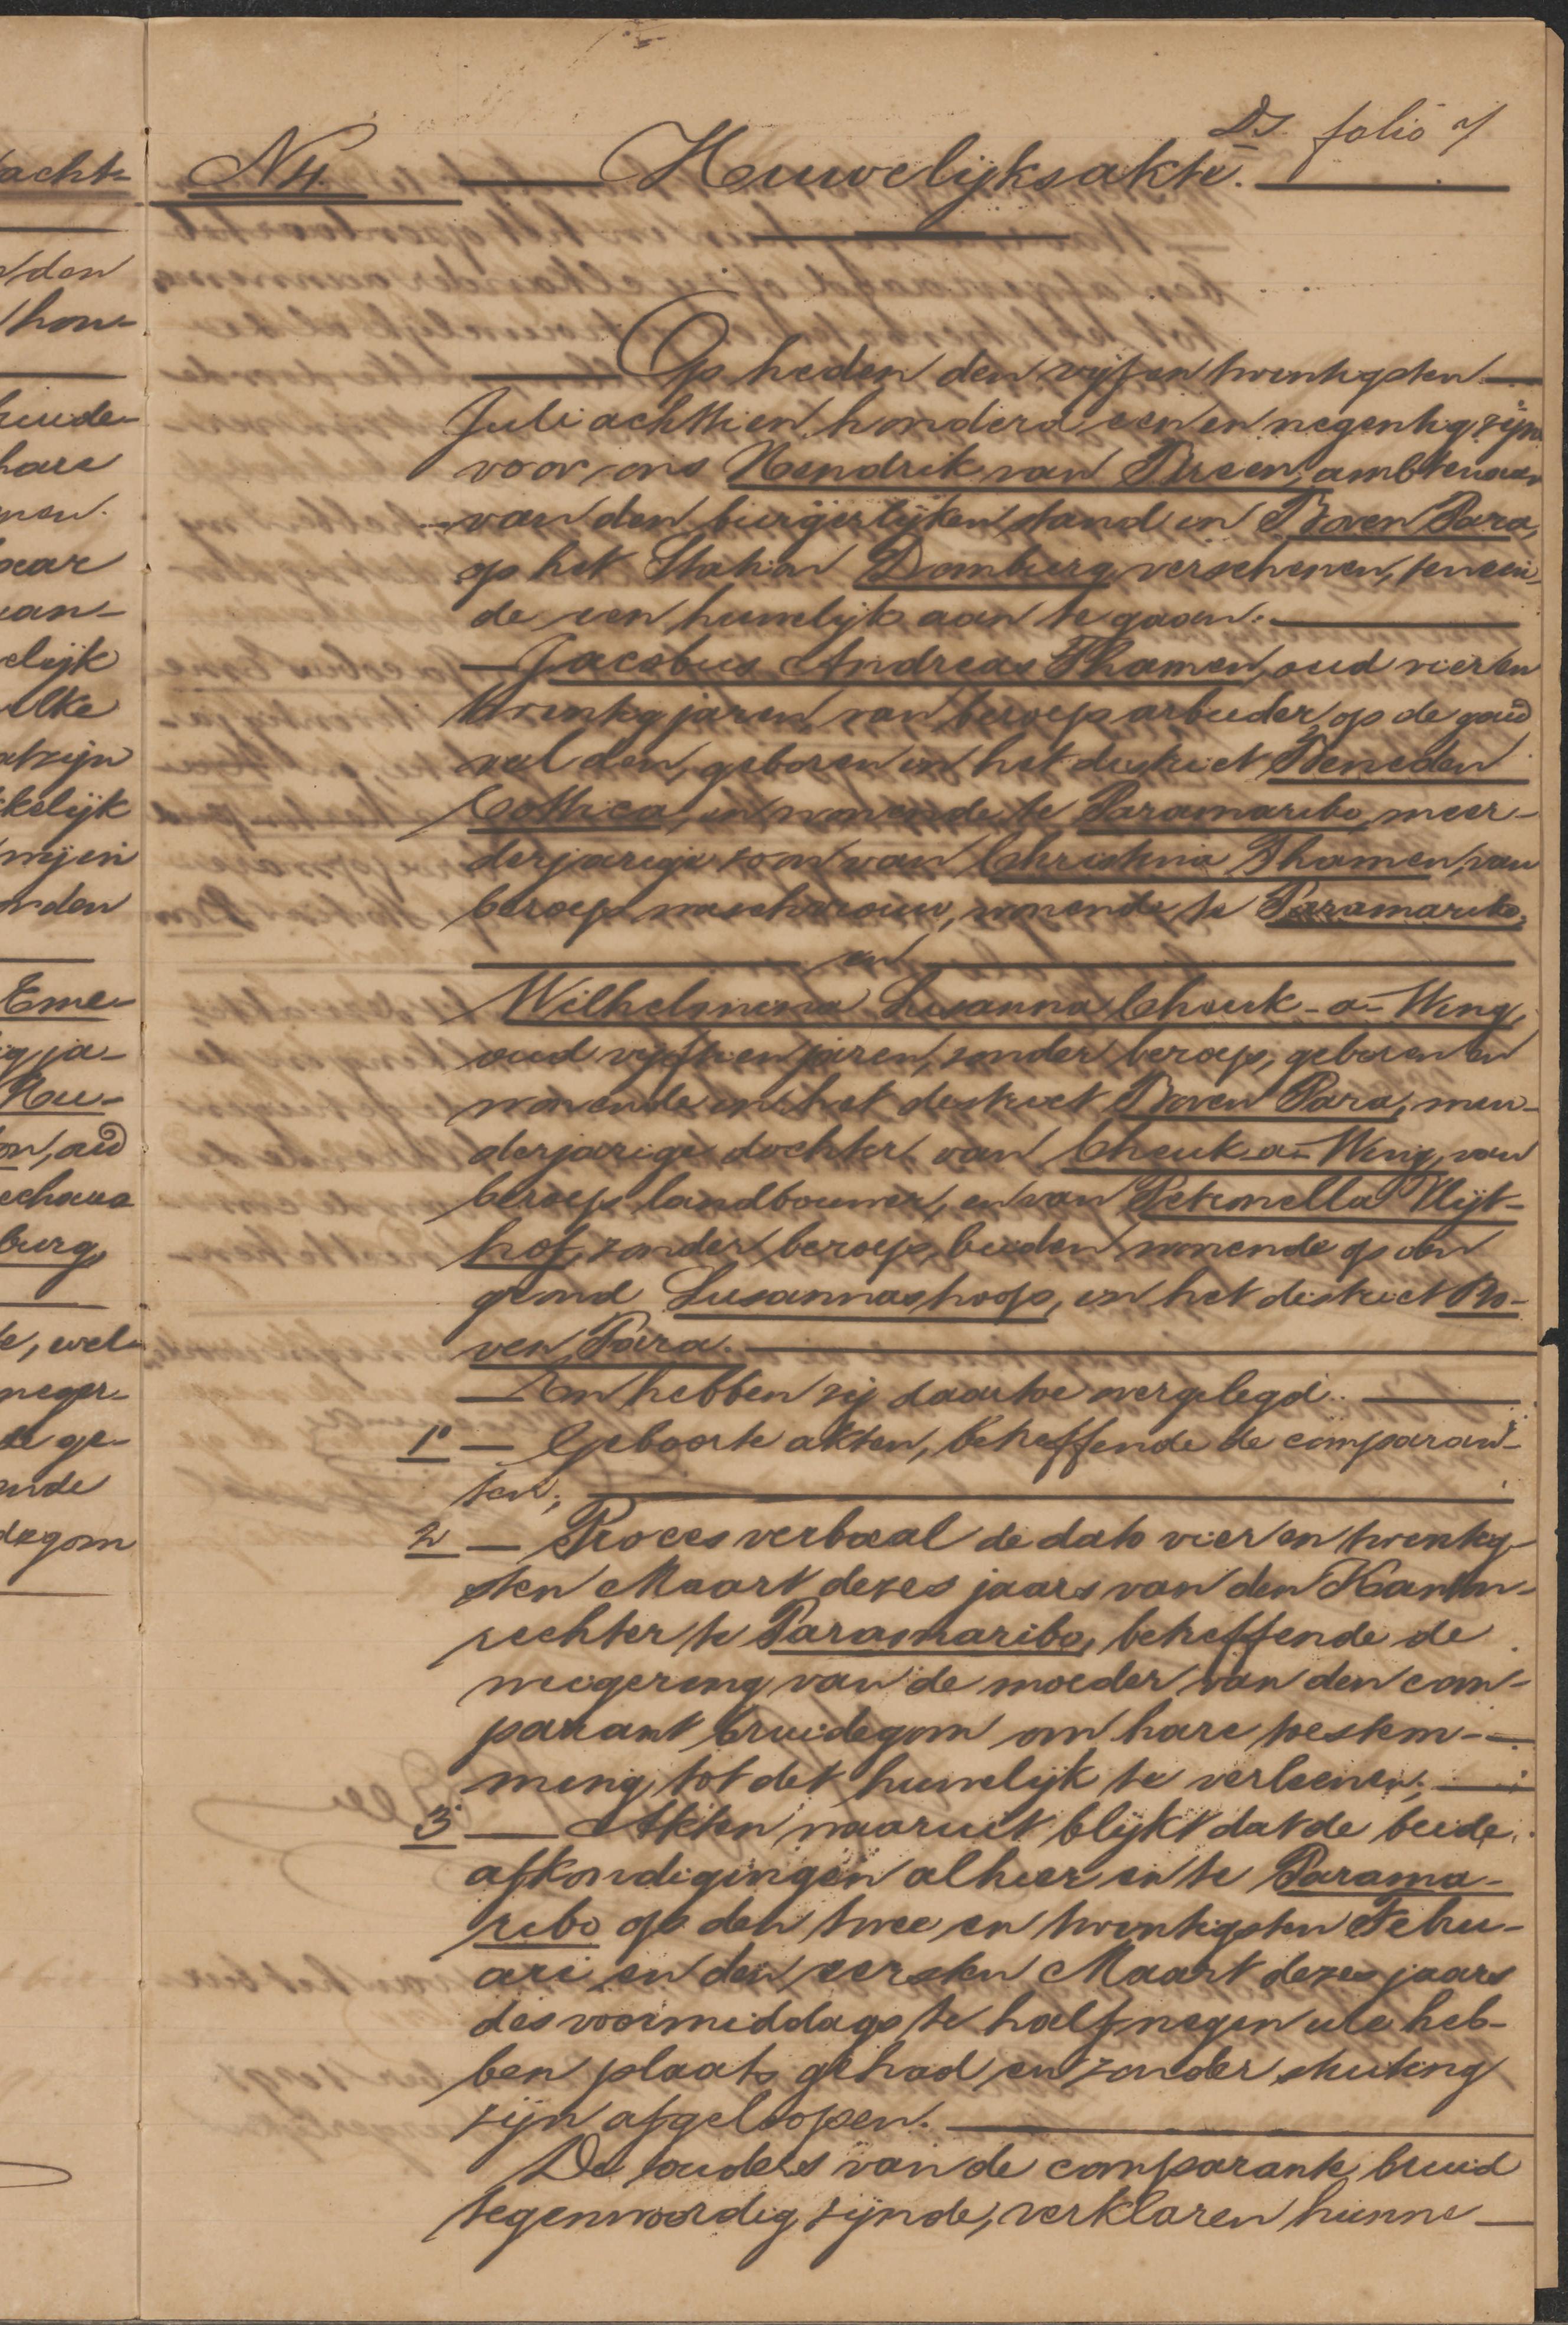 Ds. folio 7
N 4. Huwelijksakte.
Op heden den vijf en twintigsten
Juli achttien honderd een en negentig, zijn
voor ons Hendrik van Breen, ambtenaar
van den burgerlijken stand in Boven Para,
op het Station Domburg verschenen, ten ein-
de een huwelijk aan te gaan.
Jacobus Andreas Thamen, oud vier en
twintig jaren, van beroep arbeider op de goud
velden, geboren in het district Beneden
Cottica, en wonende te Paramaribo, meer-
derjarige zoon van Christina Thamen, van
beroep waschvrouw, wonende te Paramaribo,
en
Wilhelmina Susanna Cheuk-a-Wing,
oud vijftien jaren, zonder beroep, geboren en
wonende in het district Boven Para, min-
derjarige dochter van Cheuk-a-Wing, van
beroep landbouwer, en van Petronella Vlijt-
hof, zonder beroep, beiden wonende op den
grond Susannashoop, in het district Bo-
ven Para.
En hebben zij daartoe overgelegd.
1o Geboorte akten, betreffende de comparan-
ten;
2 Proces verbaal de dato vier en twintig-
sten Maart dezes jaars van den Kanton-
rechter te Paramaribo, betreffende de
weigering van de moeder van den com-
parant bruidegom om hare toestem-
ming tot dit huwelijk te verleenen;
3 Akten waaruit blijkt dat de beide
afkondigingen alhier en te Parama-
ribo op den twee en twintigsten Febru-
ari en den eersten Maart dezes jaars
des voormiddags te half negen ure heb-
ben plaats gehad en zonder stuiting
zijn afgeloopen.
De ouders van de comparante bruid
tegenwoordig zijnde, verklaren hunne